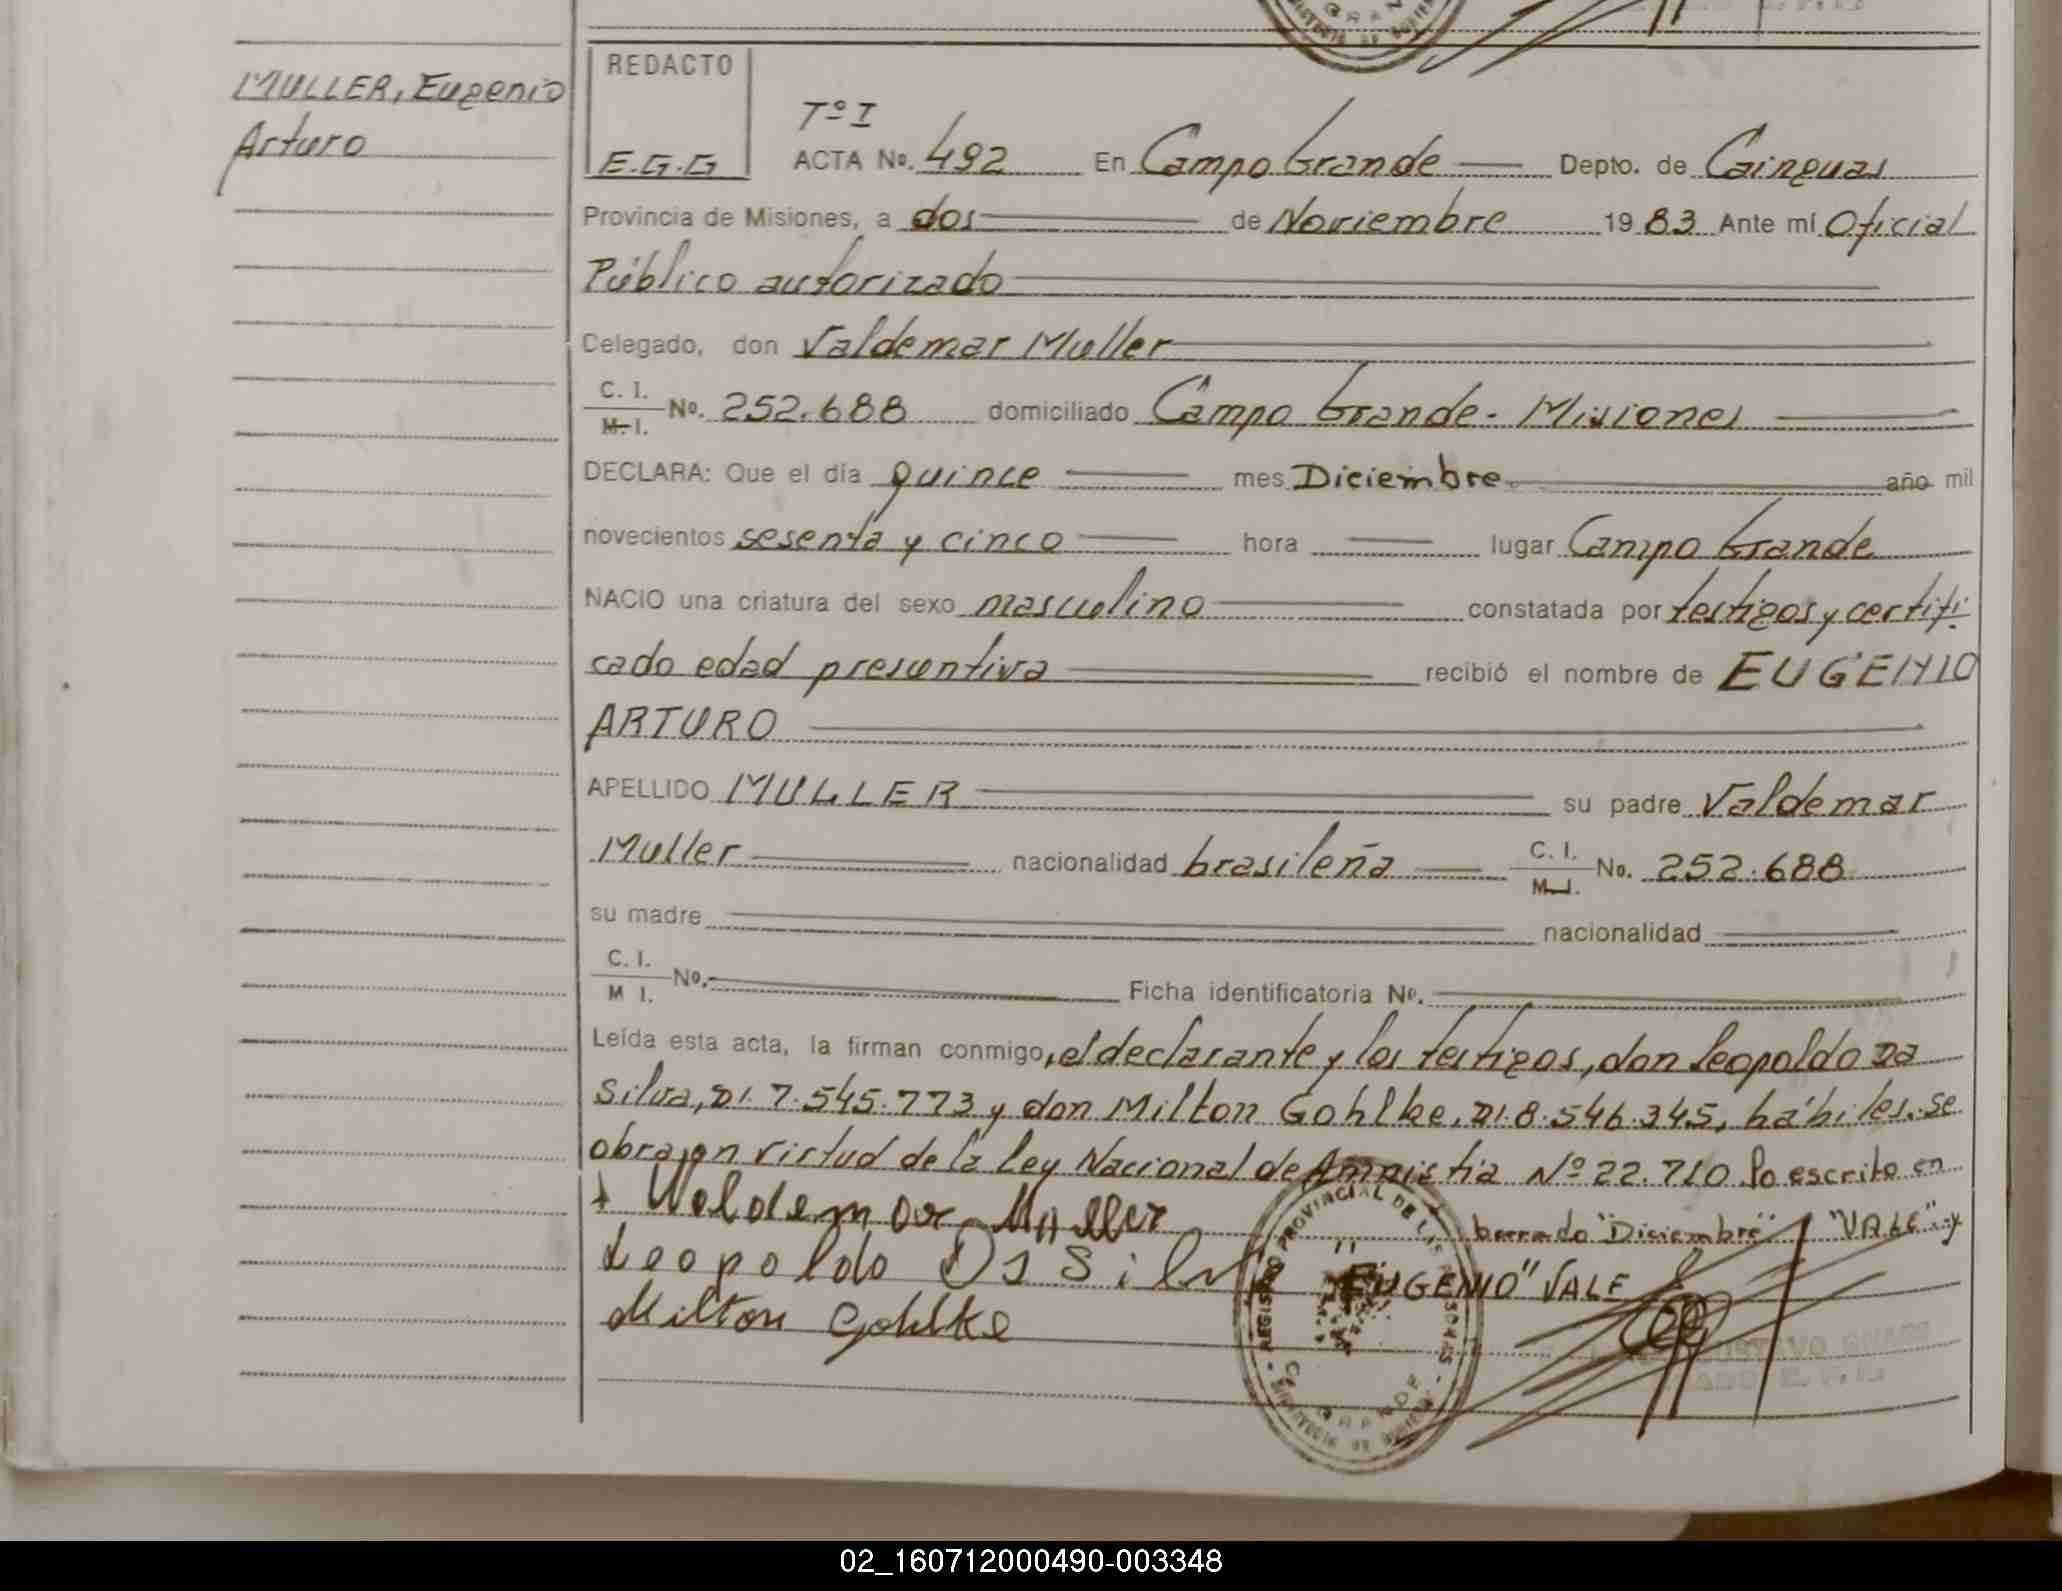 MULLER, Eugenio
Arturo
REDACTO
E.G.G
Tº I
ACTA No. 492 En Campo Grande Depto. de Cainguas
Provincia de Misiones, a dos de Noviembre 19 83 Ante mí Oficial
Público autorizado
Celegado, don Valdemar Muller
C. I.
M. I. No. 252.688 domiciliado Campo Grande - Misiones
DECLARA: Que el día quince mes Diciembre año mil
novecientos sesenta y cinco hora lugar Campo Grande
NACIO una criatura del sexo masculino constatada por testigos y certifi
cado edad presuntiva recibió el nombre de EUGENIO
ARTURO
APELLIDO MULLER su padre Valdemar
Muller nacionalidad brasileña C. I.
M. I. No. 252.688
su madre nacionalidad
C. I.
M I. No. Ficha identificatoria No.
Leída esta acta, la firman conmigo, el declarante y los testigos, don Leopoldo Da
Silva, DI. 7.545.773 y don Milton Gohlke, DI. 8.546.345, hábiles. se
obra en virtud de la Ley Nacional de Amnistia Nº 22.710 lo escrito en
borrado "Diciembre" "VALE" y
Waldemar Muller
Leopoldo Da Silva
"EUGENIO" VALE
Milton Gohlke
REGISTRO PROVINCIAL DE LAS PERSONAS
GRANDE
02_160712000490-003348